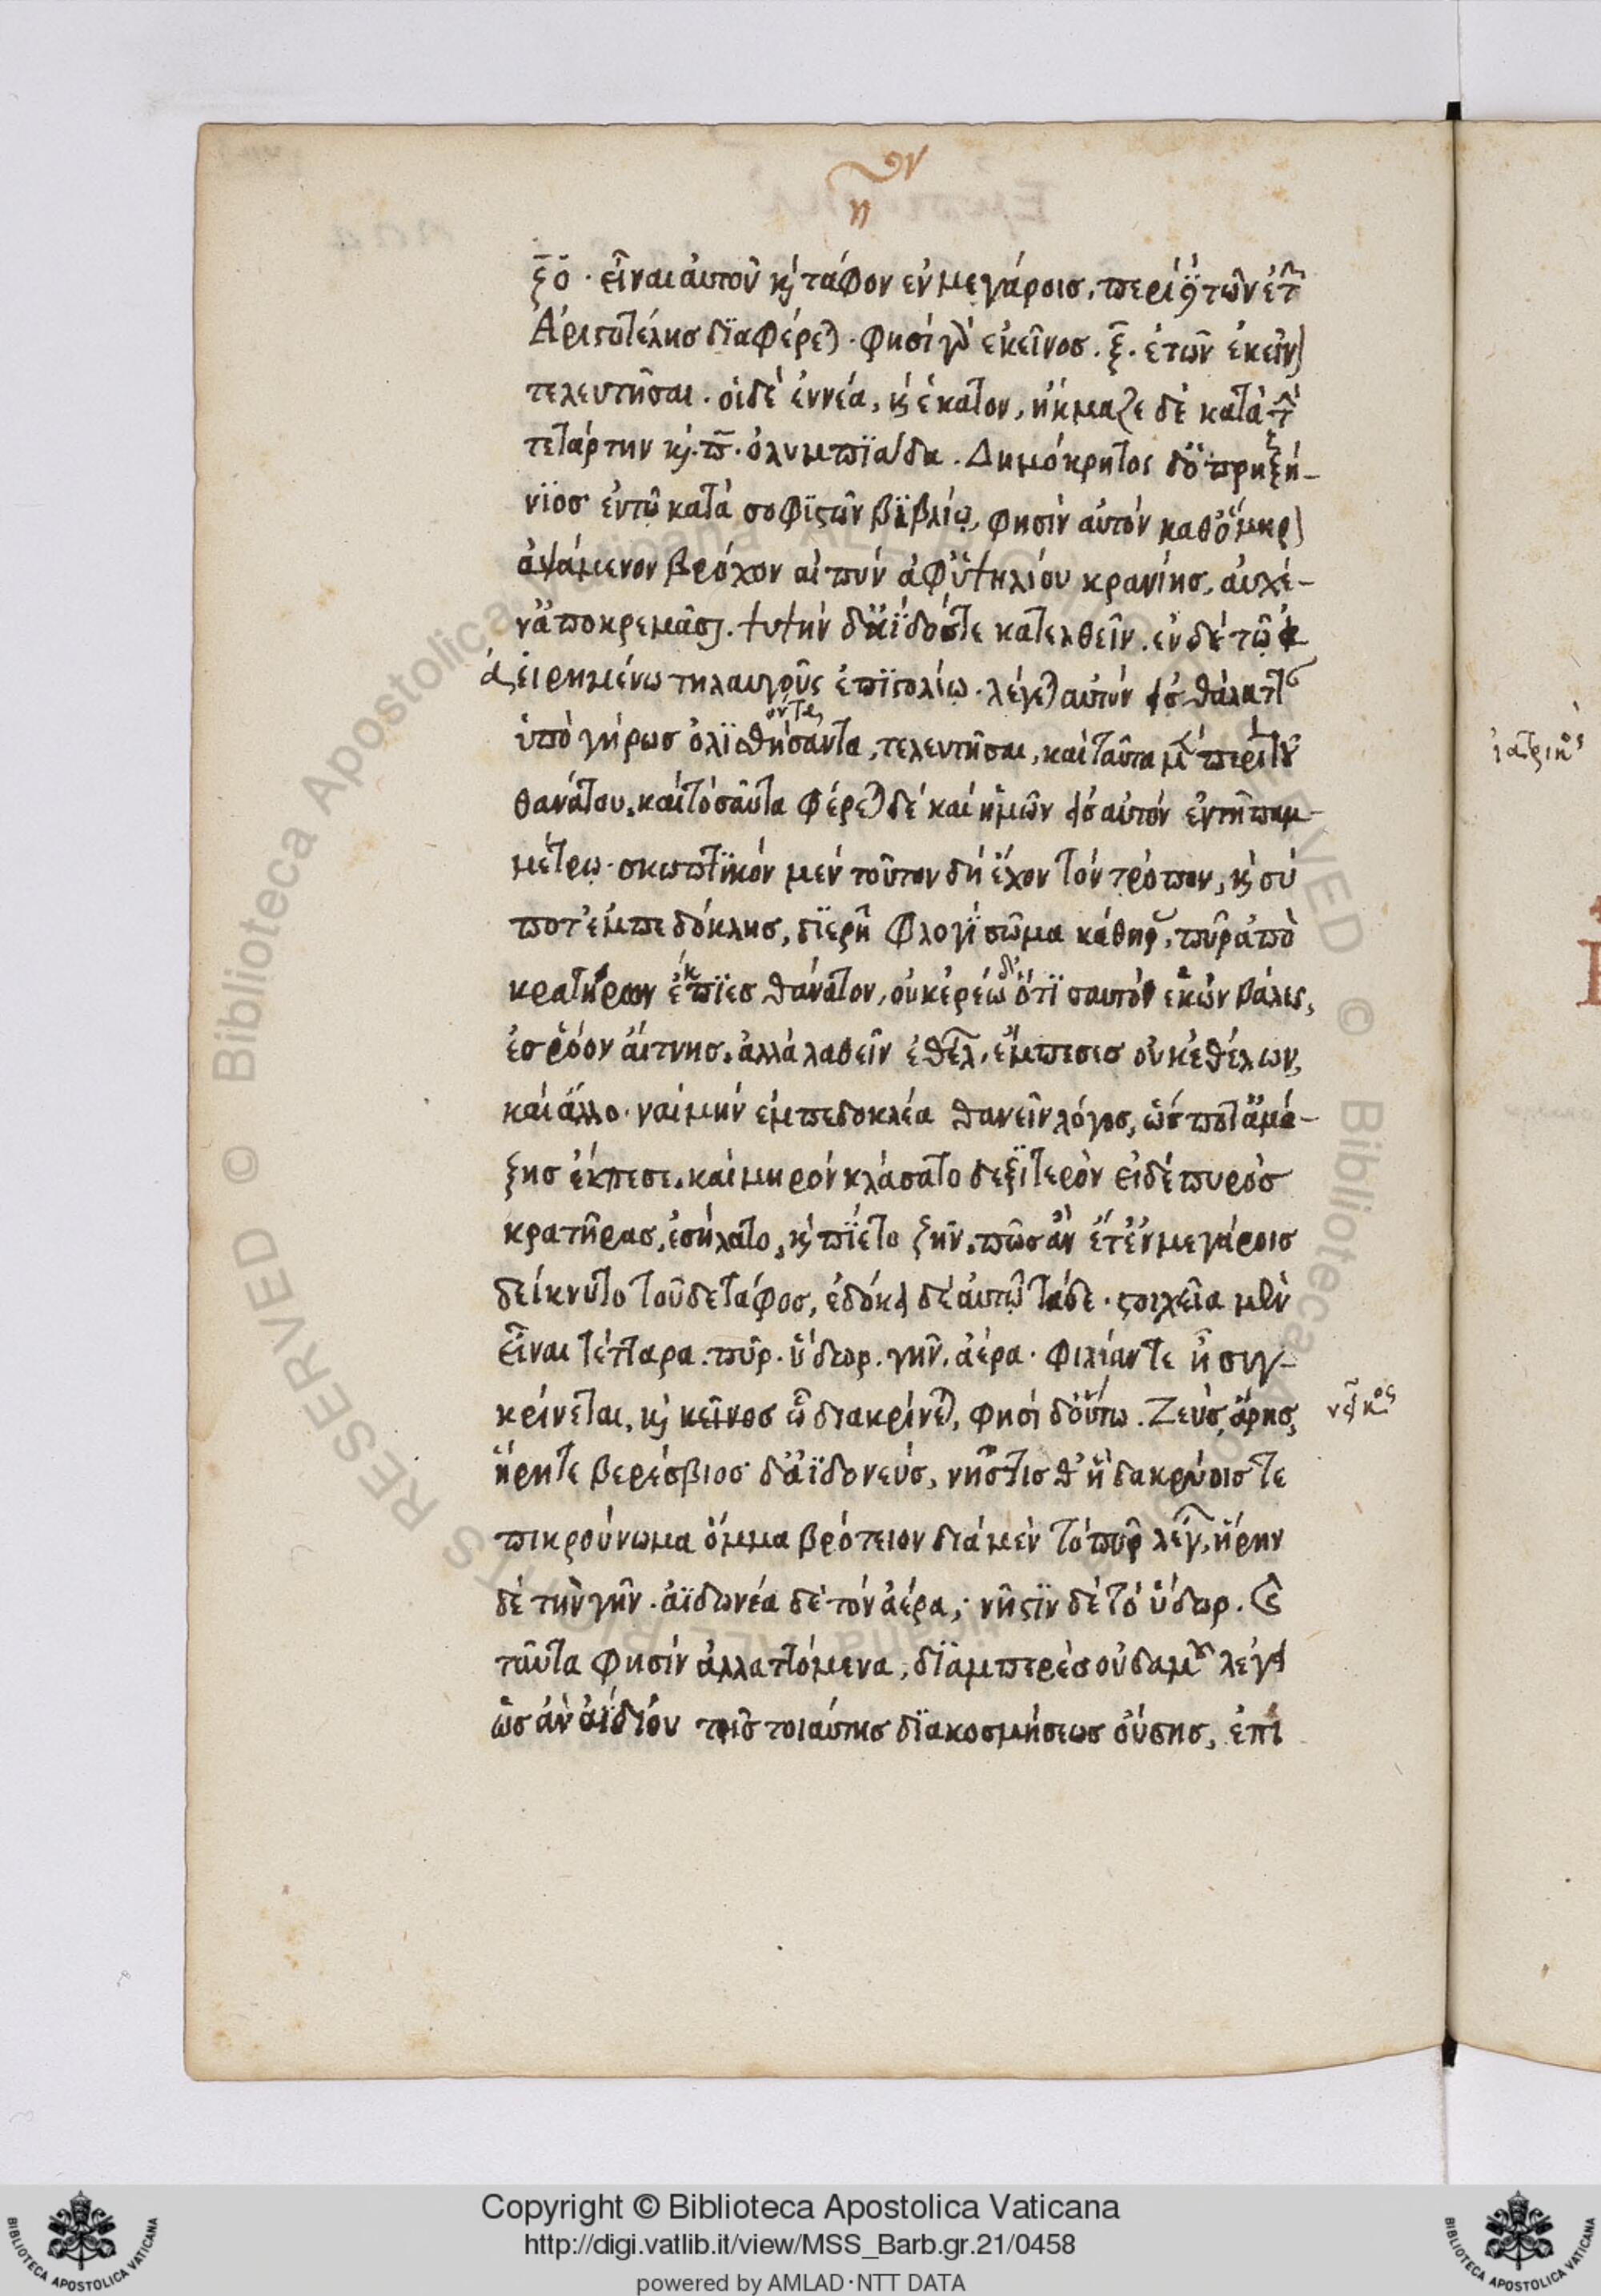 η
ξ̄ο̄ · εἶναι αὐτοῦ κ̀ τάφον ἐν μεγάροισ. περὶ τῶν ἐτ
Ἀριστοτέλησ διαφέρε · φησὶ γὰρ ἐκεῖνοσ . ξ̄ · ἐτῶν ἐκεῖν
τελευτῆσαι . οἱ δὲ ἐννέα, κ̀ ἑκατον, ἤκμαζε δὲ κατὰ τ
τετάρτην κ̀ . π̄ · ὀλυμπϊάδα . Δημόκρητος δ ὁ
νϊοσ ἐν τῷ κατὰ σοφϊστῶν βϊβλίῳ, φησὶν αὐτὸν καθ ὅμηρ
ἁψάμενον βρόχον αἰπὺν ἀφ ὑψηλίου κρανίησ, αὐχέ-
ν ἀποκρεμάσ . ψυχὴν δ ἄϊδόστε κατελθεῖν . ἐν δὲ τῷ
εἰρημένω τηλαυγοῦς ἐπϊστολίω · λέγε αὐτὸν θάλατ
ὑπὸ γήρωσ ὀλϊσθήσαντα, τελευτῆσαι, καὶ ταῦτα μ περὶ τοῦ
οντε
θανάτου . καὶ τοσαῦτα φέρε δὲ καὶ ἡμῶν αὐτὸν ἐν τῇ παμ-
μέτρῳ · σκωπτϊκὸν μὲν τοῦτον δὴ ἔχον τὸν τρόπον, κ̀ σύ
ποτ ἐμπεδόκλησ, διερῇ φλογὶ σῶμα κάθηρ, πῦρ ἀπὸ
κρατήρων ἔκπϊεσ θάνατον, οὐκ ἐρέω δ ὅτϊ σαυτὸν ἑκὼν βάλες,
ἐσ ῥόον αἴτνησ . ἀλλὰ λαθεῖν ἐθέλ, ἔμπεσεσ οὐκ ἐθέλων,
καὶ ἄλλο · ναὶ μὴν ἐμπεδοκλέα θανεῖν λόγοσ, ὥσ ποτ ἀμά-
ξησ ἔκπεσε . καὶ μηρὸν κλάσατο δεξϊτερὸν εἰ δὲ πυρὸσ
κρατῆρασ, ἐσήλατο, κ̀ πίετο ζῆν, πῶσ ἂν ἔτ ἐν μεγάροισ
δείκνυτο τοῦδε τάφοσ, ἐδόκ δὲ αὐτῷ τάδε · στοιχεῖα μὲν
εἶναι τέτταρα . πῦρ . ὕδωρ . γῆν . ἀέρα · φιλίαν τε ᾗ συγ-
κρίνεται, κ̀ κεῖνοσ ᾧ διακρίνε, φησὶ δ οὕτω . Ζεύσ, ἄρησ,
νεῖκος
ἥρη τε βερέσβιοσ δ ἀϊδονεύσ, νῆστισ θ ἣ δακρύοισ τε
πικροῦνωμα ὄμμα βρότειον δία μὲν τὸ πῦρ λέγ, ἥρην
δὲ τὴν γῆν . ἀϊδωνέα δὲ τὸν ἀέρα, νῆστϊν δὲ τὸ ὕδωρ .
ταῦτα φησὶν ἀλλαττόμενα, διαμπερὲσ οὐδαμ λέγ
ὡσ ἂν ἀϊδίου τῆσ τοιαύτησ διακοσμήσεωσ οὔσησ, ἐπὶ
Copyright © Biblioteca Apostolica Vaticana
http://digi.vatlib.it/view/MSS_Barb.gr.21/0458
powered by AMLAD·NTT DATA